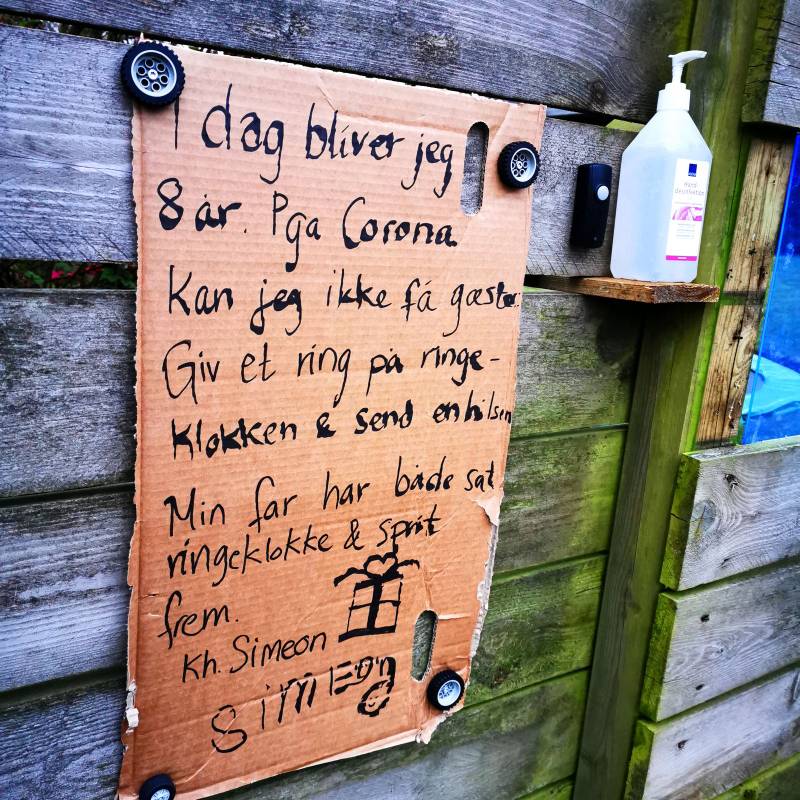 I dag bliver jeg
8 år. Pga Corona
Kan jeg ikke få gæster.
Giv et ring på ringe-
klokken & send en hilsen
Min far har både sat
ringeklokke & sprit
frem.
Kh. Simeon
SIMEON
Hånd
desinfektion